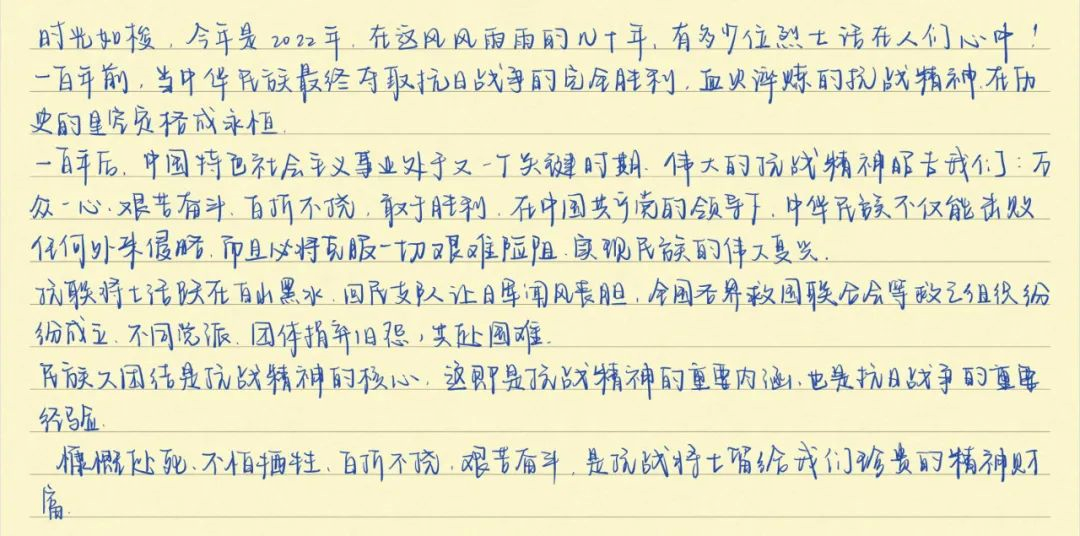 时光如梭，今年是2022年，在这风风雨雨的几十年，有多少位烈士活在人们心中！
一百年前，当中华民族最终夺取抗日战争的完全胜利，血火淬炼的抗战精神，在历
史的星空定格成永恒.
一百年后，中国特色社会主义事业处于又一个关键时期.伟大的抗战精神昭告我们：万
众一心、艰苦奋斗、百折不挠，敢于胜利，在中国共产党的领导下，中华民族不仅能击败
任何外来侵略，而且必将克服一切艰难险阻，实现民族的伟大复兴.
抗联将士活跃在白山黑水，回民支队让日军闻风丧胆，全国各界救国联合会等救亡组织纷
纷成立、不同党派、团体捐弃旧怨，共赴国难.
民族大团结是抗战精神的核心，这即是抗战精神的重要内涵，也是抗日战争的重要
经验.
慷慨赴死、不怕牺牲、百折不挠、艰苦奋斗，是抗战将士留给我们珍贵的精神财
富.